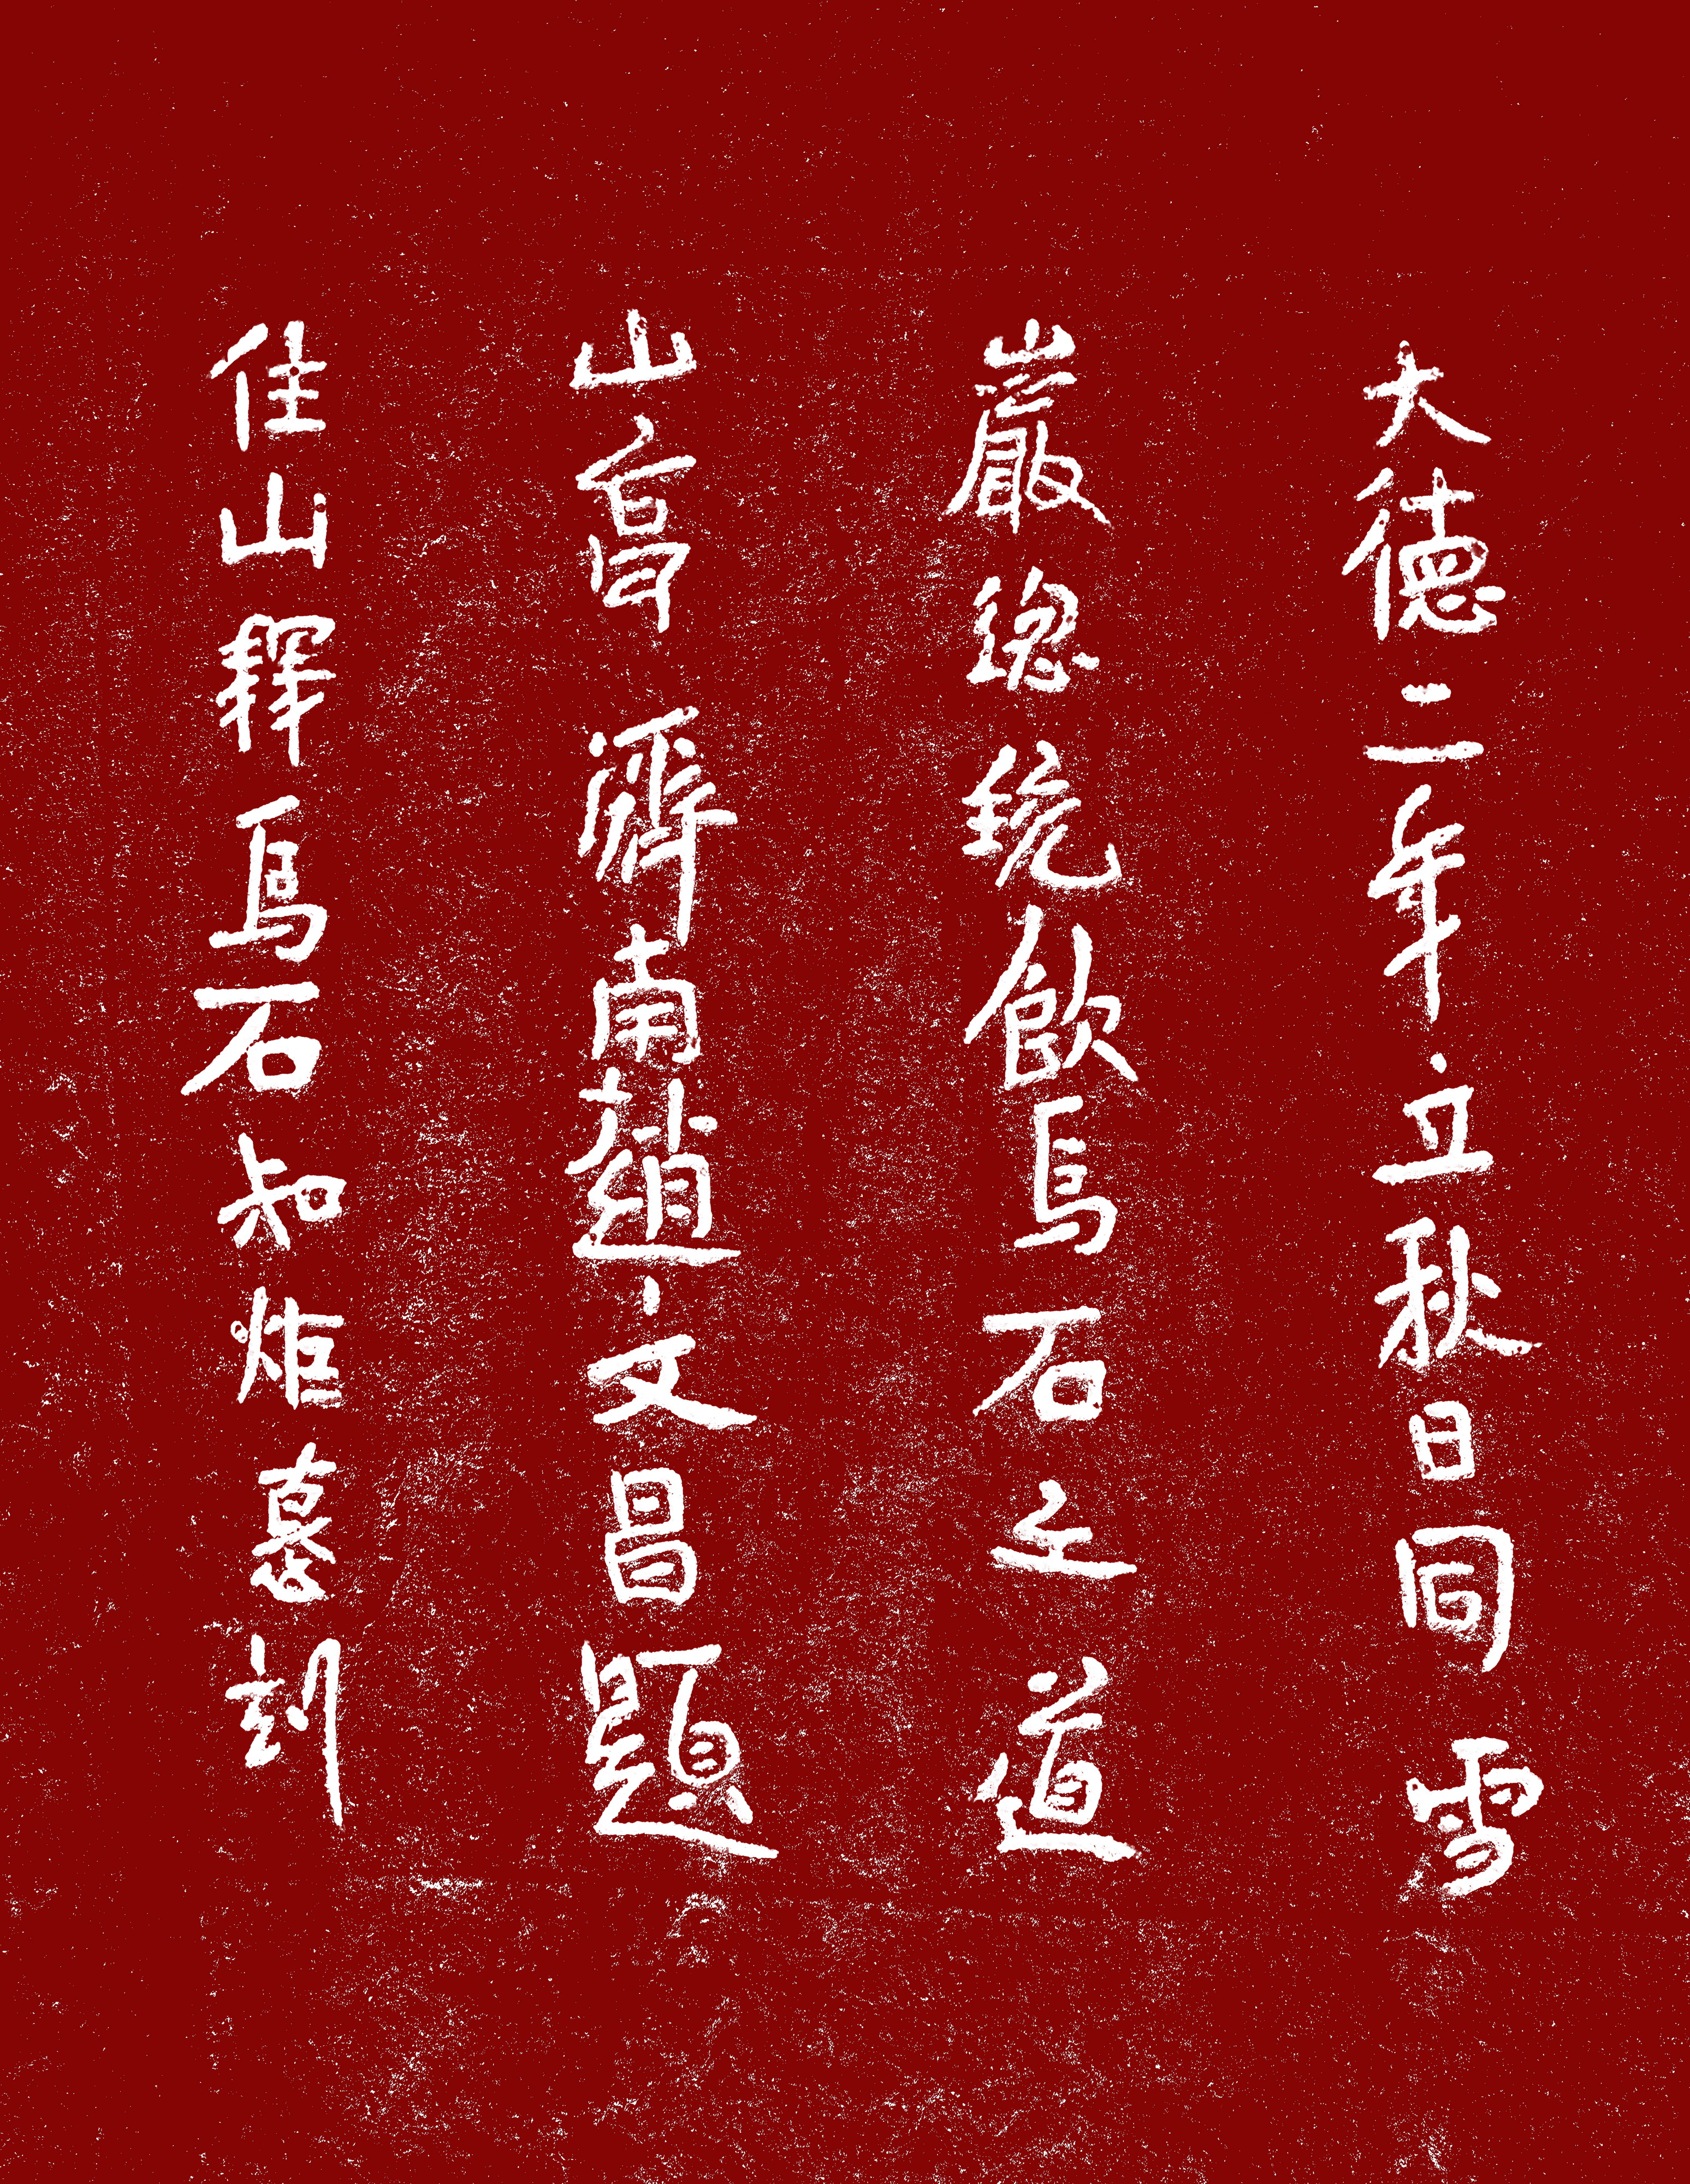 大德二年立秋日同雪
巖總統飲烏石之道
山亭濟南趙文昌題
住山釋烏石知炬慕刻